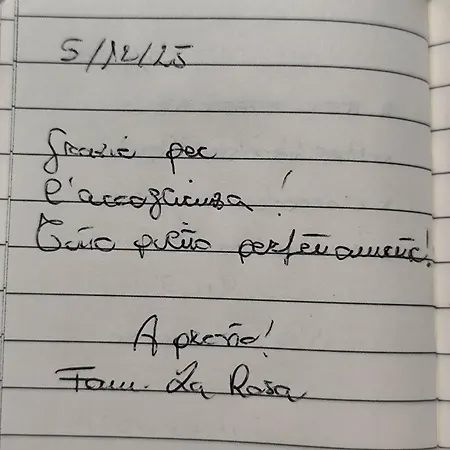 5/12/25
Grazie per
l'accoglienza!
Tutto perfettamente!
A presto!
Fam. La Rosa